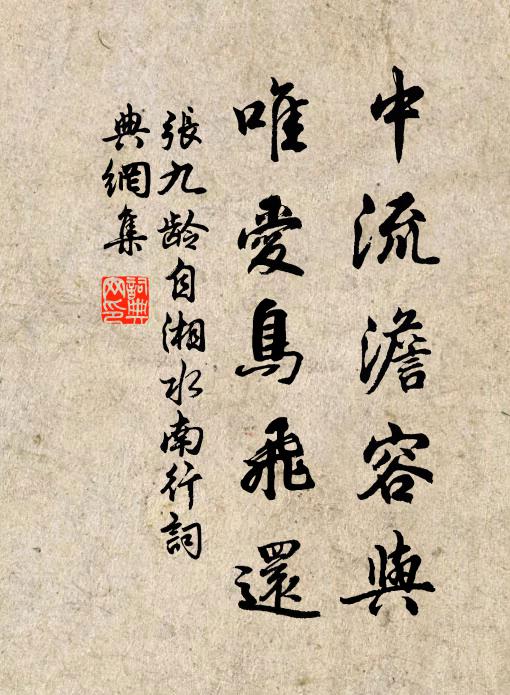 中流澹容與
唯愛鳥飛還
張九龄自湘水南行詞
典網集
詞典
网印